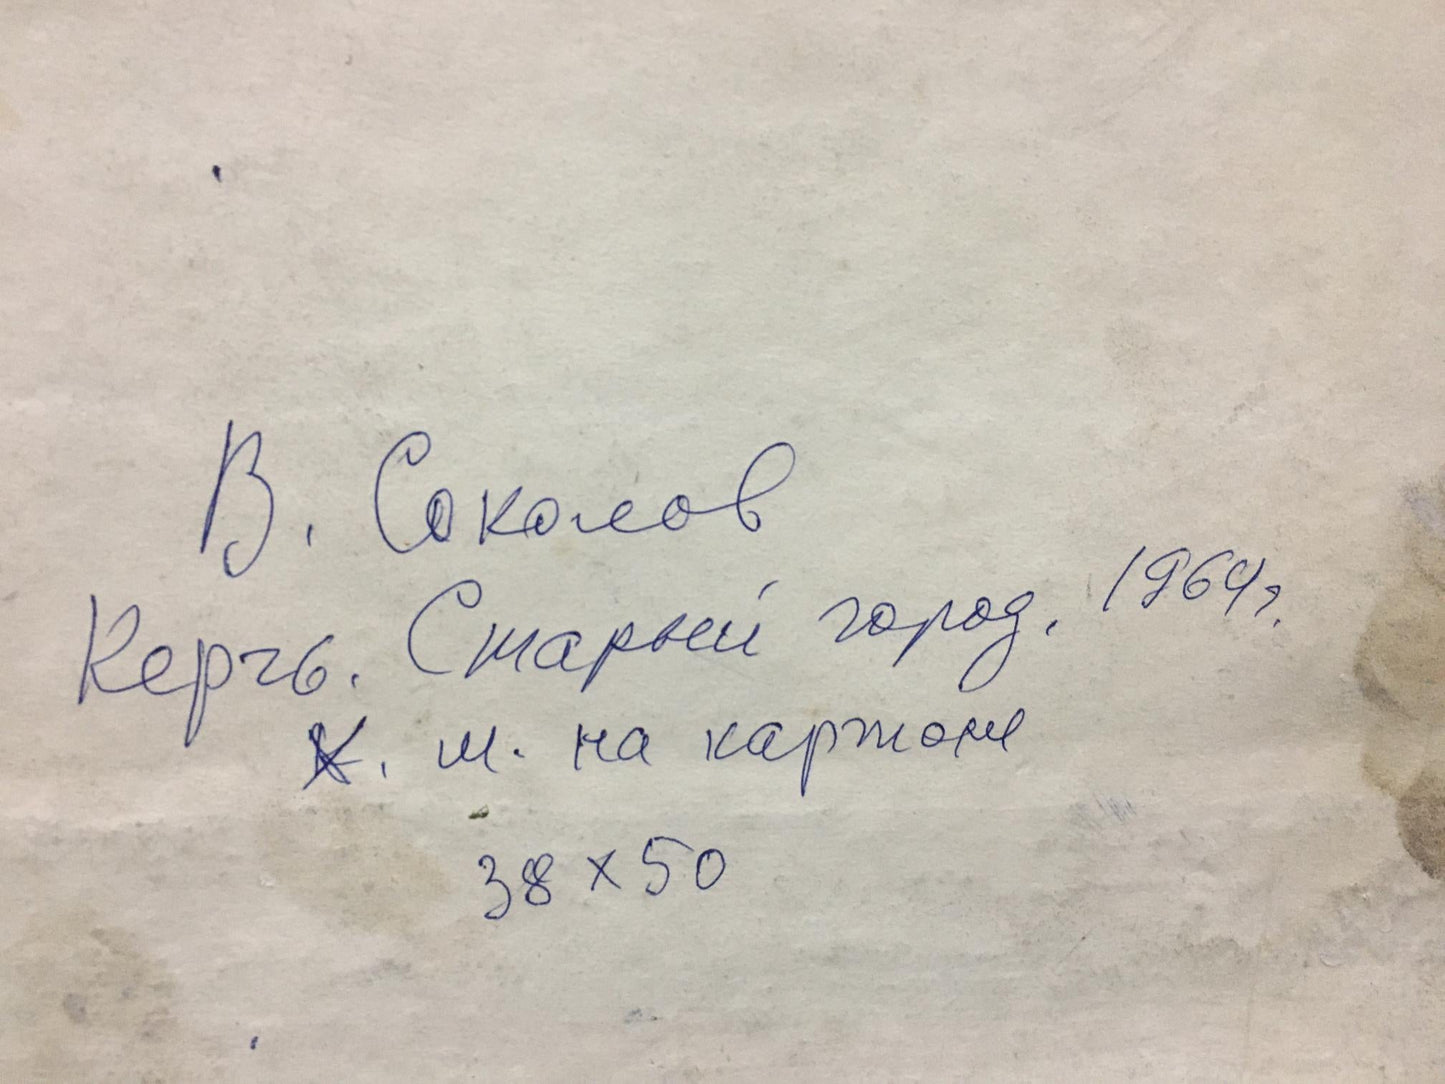 В. Соколов
Керчь. Старый город. 1964г.
х. м. на картоне
38 x 50